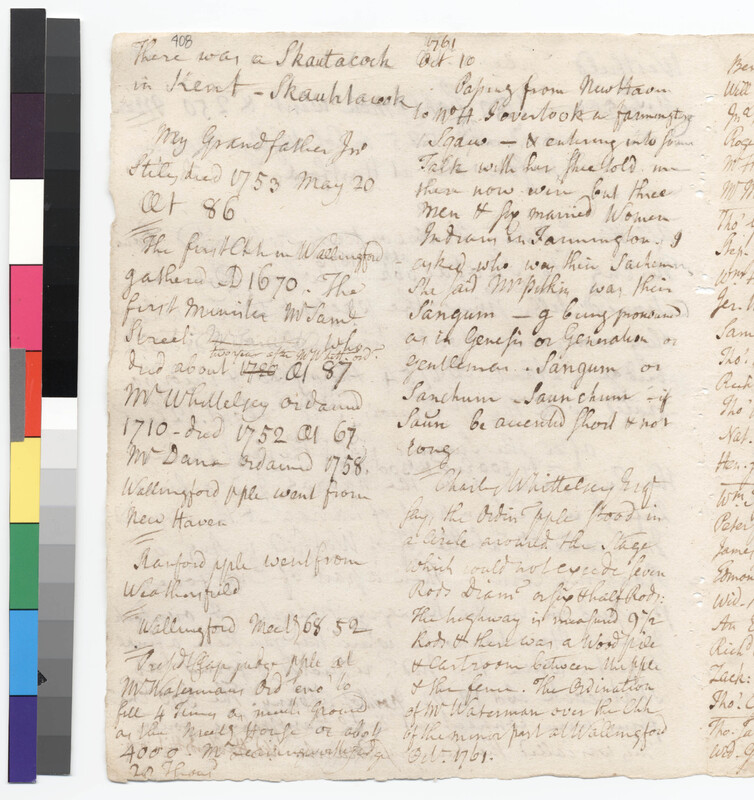 408
There was a Skautacook
in Kent - Skauhtacook
My Grandfather Jno
Stiles died 1753 May 20
Æt 86
The first Chh in Wallingford
gathered AD 1670. The
first Minister Mr Saml
Street who
two years after Mr Whitt. ord.
died about 1720 Æt 87
Mr Whittelsey ordained
1710 - died 1752 Æt 67
Mr Dana ordained 1758.
Wallingford pple went from
New Haven
Branford pple went from
Weathersfield
Wallingford Meet 68 52
Presidt Clap judge pple at
Mr Watermans Ord eno' to
fill 4 Times as much Ground
as the Meetg House or about
4000. Mr
1761
Oct. 10
Passing from New Haven
to No H. I overtook a Farmingto
Sqaw - & entering into some
Talk with her shee told me
there now were but three
Men & six married Women
Indians in Farmington. I
asked who was their Sachem
She said Mr Pitkin was their
Sangum - g being pronounced
as in Genesis or Generation or
gentleman. Sangum or
Sanchum Saunchum - if
Saun be accented short & not
long
Charles Whittelsey Esqr
says the Ordin pple stood in
a Circle around the Stage
which could not exceed seven
Rods Diamr or six & half Rods:
The highway is measured 9 1/2
Rods & there was a Wood pile
& Cartroom between the pple
& the fence. The Ordination
of Mr Waterman over the Chh
of the minor part at Wallingford
Octr. 1761.
Will
Jna
Roge
Mr
Mr
Tho
Jer.
Sam
Tho.
Tho
Nat.
Hen.
Wm
Peter
Jame
Edmon
Wid.
An
Richd
Zach:
Tho. C
Tho. Ja
Wid.